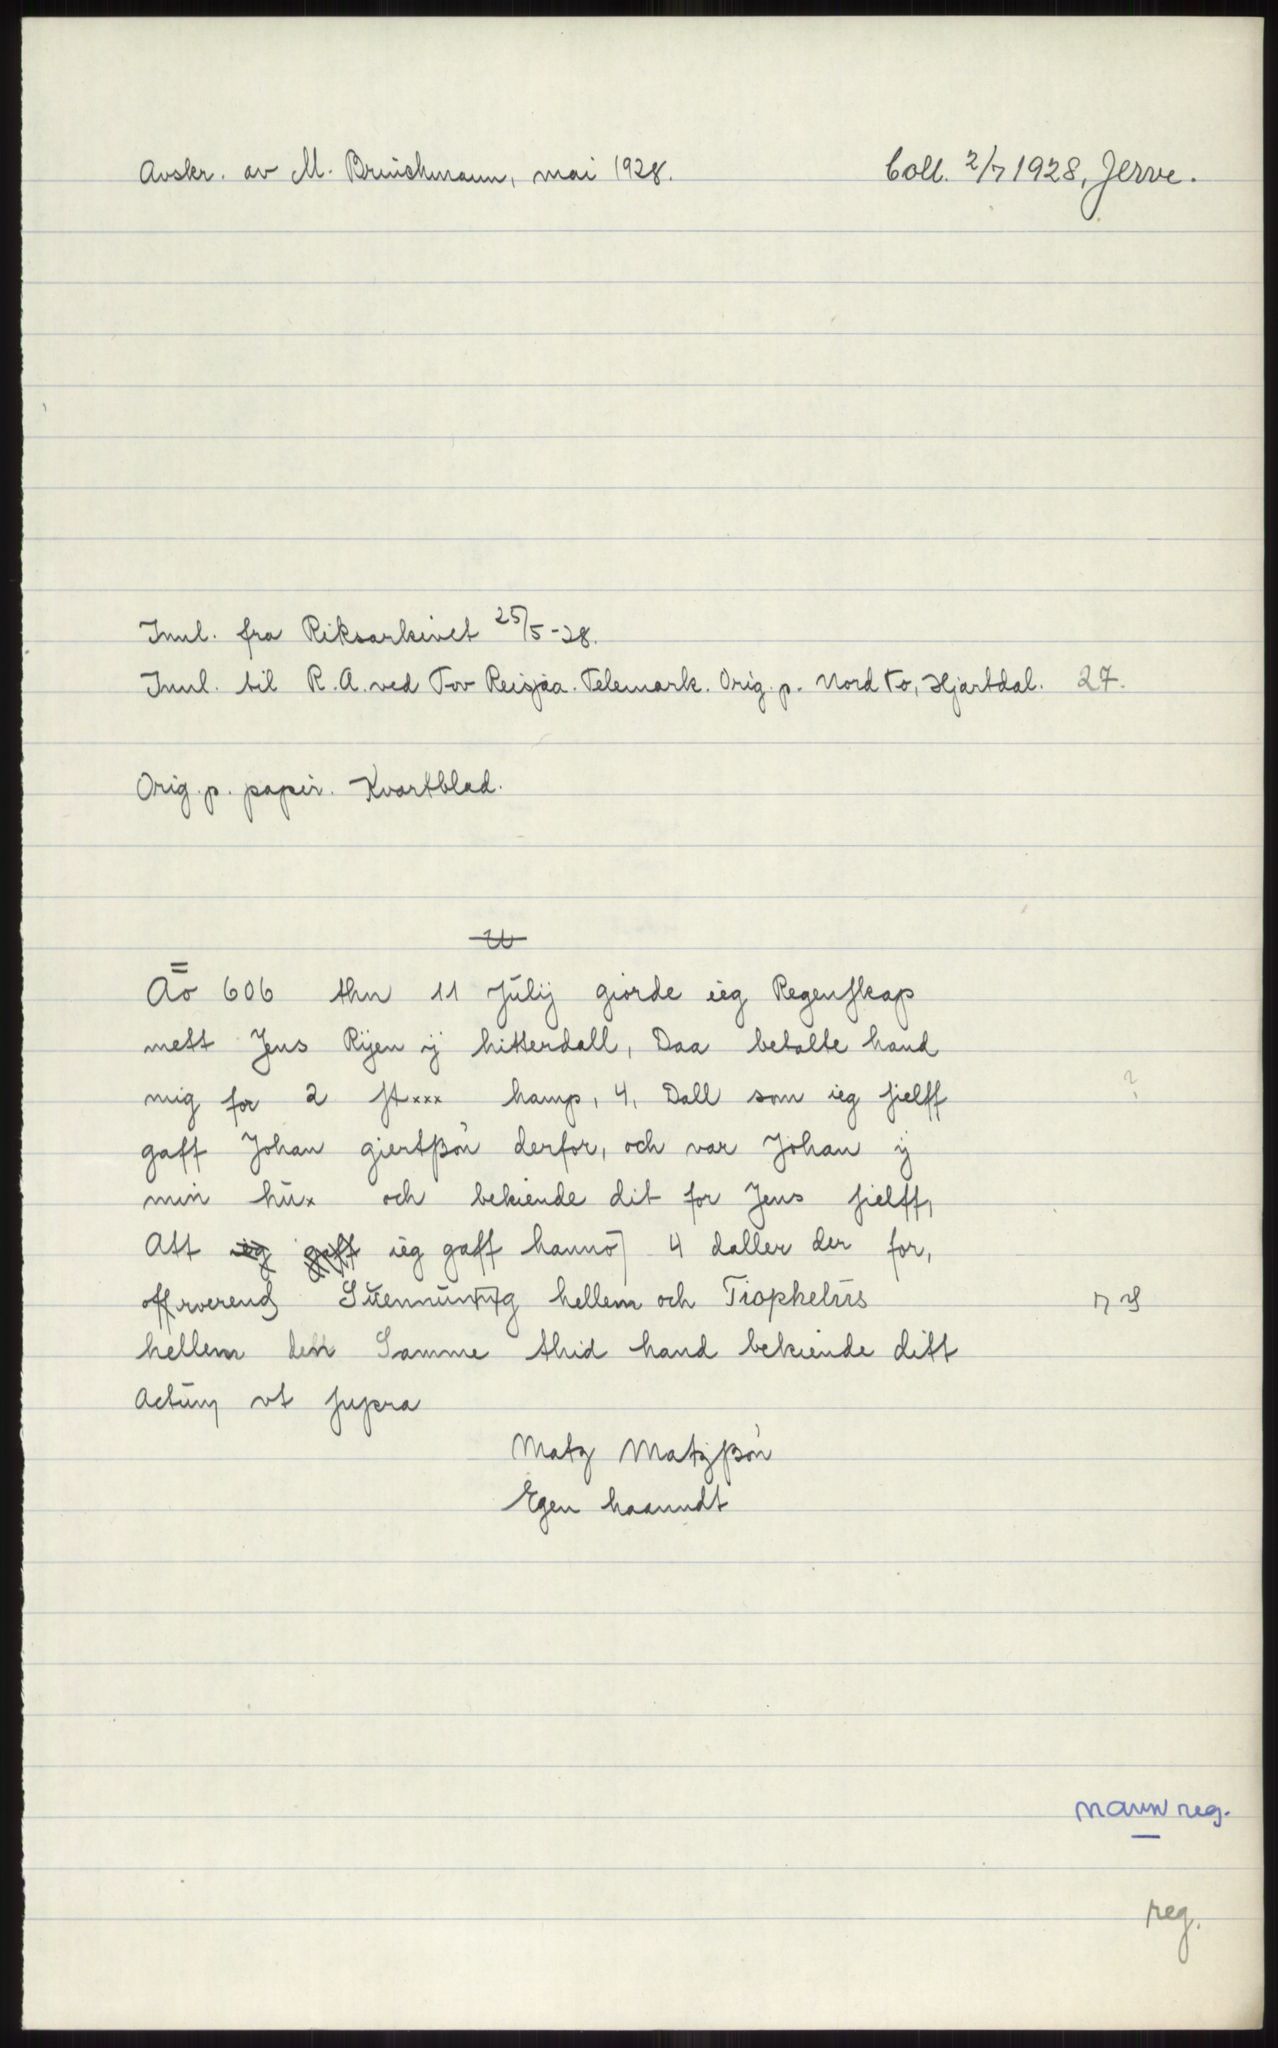 Avskr. av M. Brinchmann, mai 1928. Coll. 2/7 1928, Jerve.
Innl. fra Riksarkivet 25/5-28.
Innl. til R.A. ved Tov Reisjaa. Telemark. Orig. p. Nord Bø, Hjartdal. 27.
Orig. p. papir. Kvartblad.
Aō 606 thn 11 Júlij giorde ieg Regenskap
mett Jens Rÿen ÿ hitterdall, Daa betalte hand
mig for 2 st××× hamp, 4, Dall som ieg sielff ?
gaff Johan giertßøn derfor, och var Johan ÿ
min hu× och bekiende dit for Jens sielff,
Att ieg gaff ieg gaff hannō 4 daller der for,
offrverend hellem och Tiophelus
hellem den Samme thid hand bekiende ditt
Actum vt supra
Matz Matzßøn
Egen haanndt
navn reg.
reg.